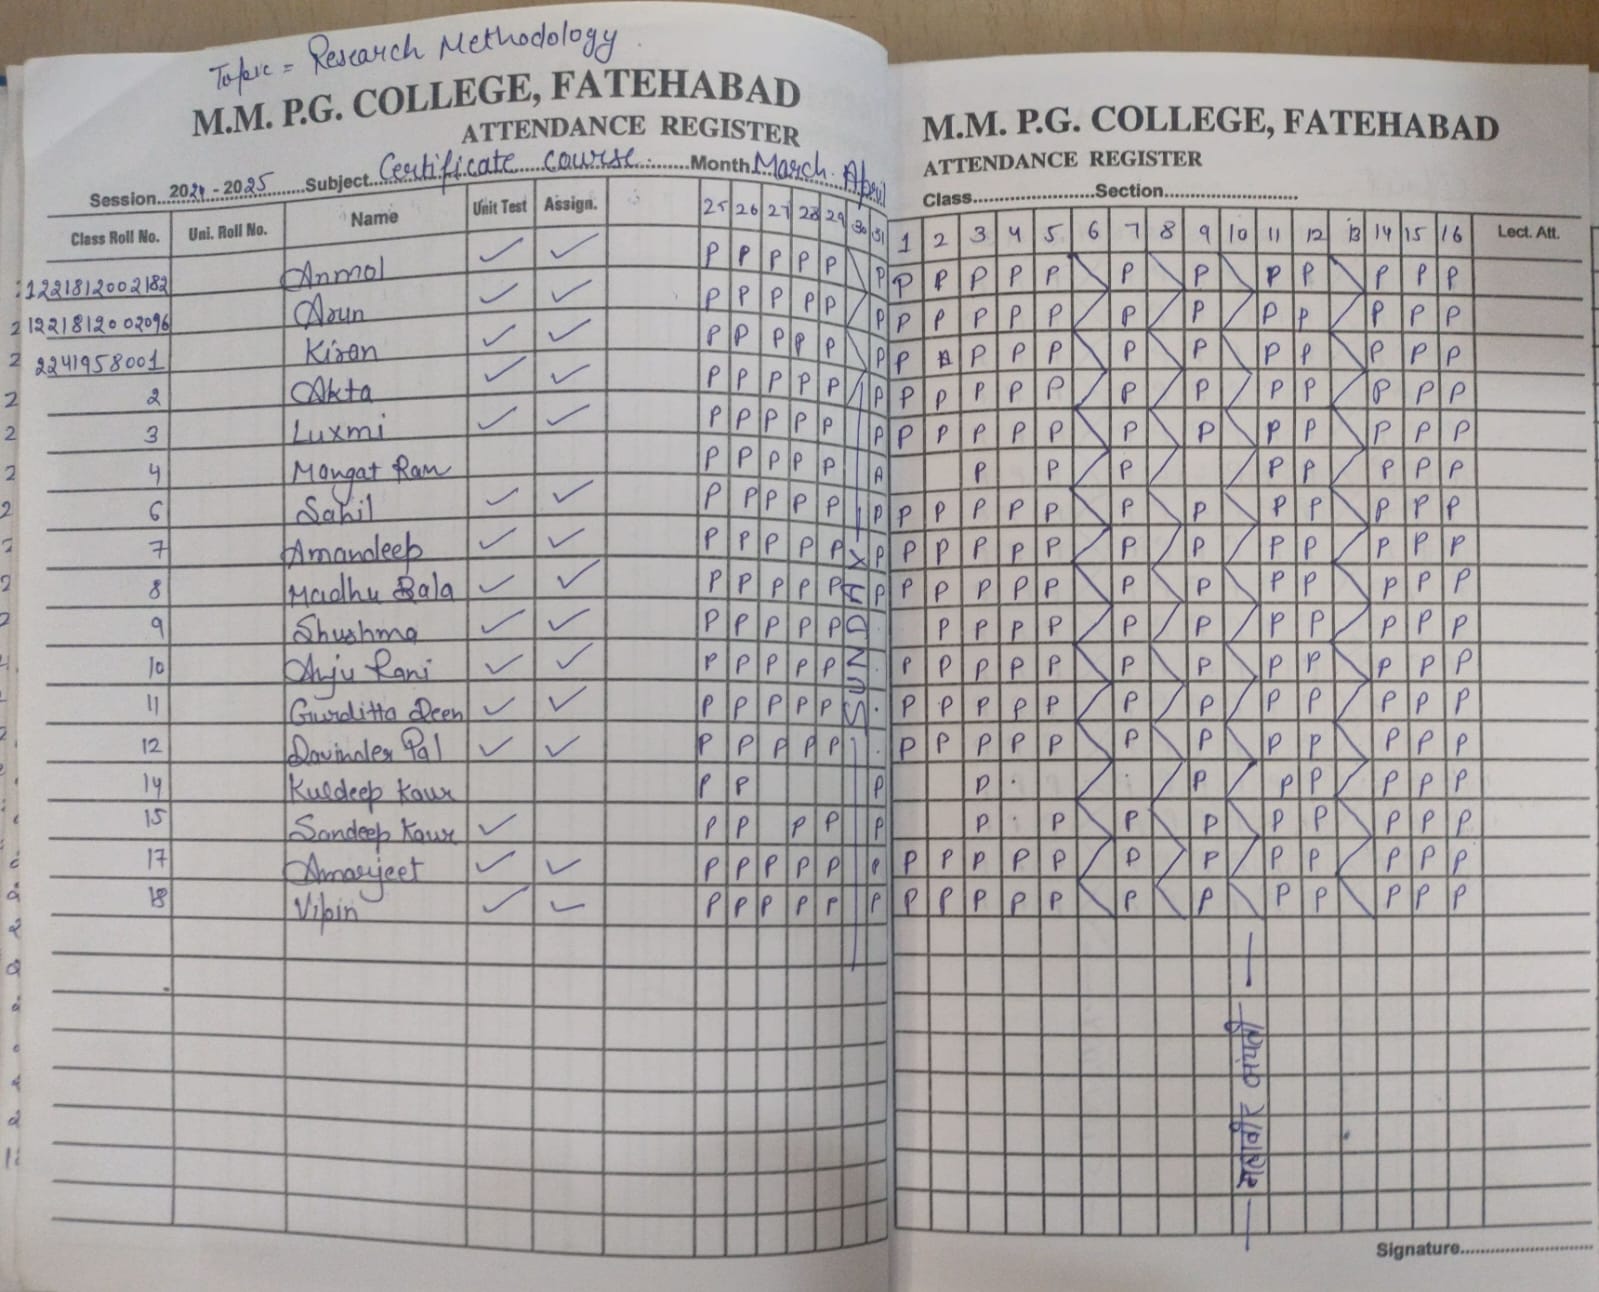 Topic = Research Methodology
M.M. P.G. COLLEGE, FATEHABAD
ATTENDANCE REGISTER
Session....2024-2025.......Subject..Certificate course.......Month March. April
Class Roll No. Uni. Roll No. Name Unit Test Assign. 25 26 27 28 29 30 31
1221812002182 Anmol ✓ ✓ P P P P P P
1221812002096 Arun ✓ ✓ P P P P P P
2241958001 Kiran ✓ ✓ P P P P P P
2 Akta ✓ ✓ P P P P P P
3 Luxmi ✓ ✓ P P P P P P
4 Mangat Ram P P P P P A
6 Sahil ✓ ✓ P P P P P P
7 Amandeep ✓ ✓ P P P P P P
8 Madhu Bala ✓ ✓ P P P P P P
9 Shushma ✓ ✓ P P P P P
10 Anju Rani ✓ ✓ P P P P P
11 Gurditta Deen ✓ ✓ P P P P P
12 Davinder Pal ✓ ✓ P P P P P
14 Kuldeep Kaur P P P
15 Sandeep Kaur ✓ P P P P P
17 Amarjeet ✓ ✓ P P P P P P
18 Vipin ✓ ✓ P P P P P P
SUNDAY
M.M. P.G. COLLEGE, FATEHABAD
ATTENDANCE REGISTER
Class......................Section........................
1 2 3 4 5 6 7 8 9 10 11 12 13 14 15 16 Lect. Att.
P P P P P P P P P P P P
P P P P P P P P P P P P
P P P P P P P P P P P
P P P P P P P P P P P P
P P P P P P P P P P P P
P P P P P P P P
P P P P P P P P P P P P
P P P P P P P P P P P P
P P P P P P P P P P P P
P P P P P P P P P P P
P P P P P P P P P P P P
P P P P P P P P P P P P
P P P P P P P P P P P P
P P P P P P P
P P P P P P P P P
P P P P P P P P P P P P
P P P P P P P P P P P P
महावीर जयंती
Signature........................